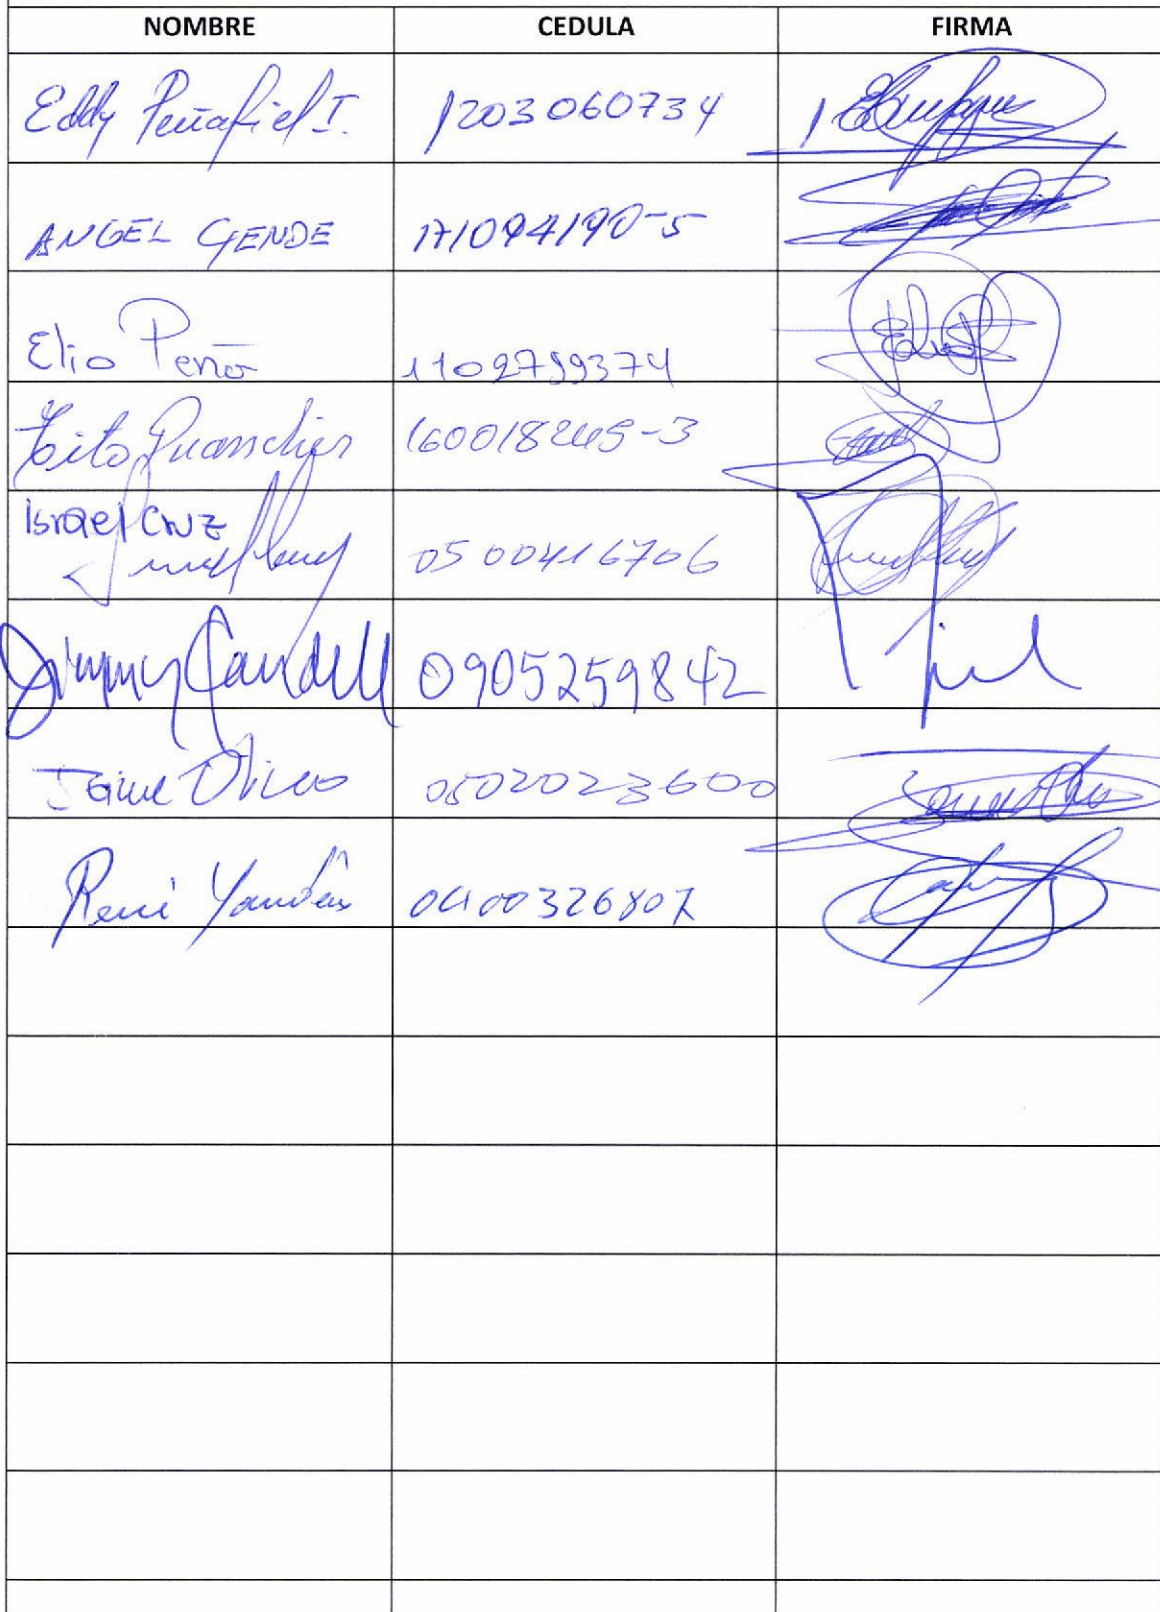 NOMBRE CEDULA FIRMA
Eddy Peñafiel I. 1203060734
ANGEL GENDE 171094190-5
Elio Peña 1102799374
Tito 160018245-3
Israel Cruz 0500416706
Jimmy Candell 0905259842
Jaime Olivo 0502023600
René Yandún 0400326807